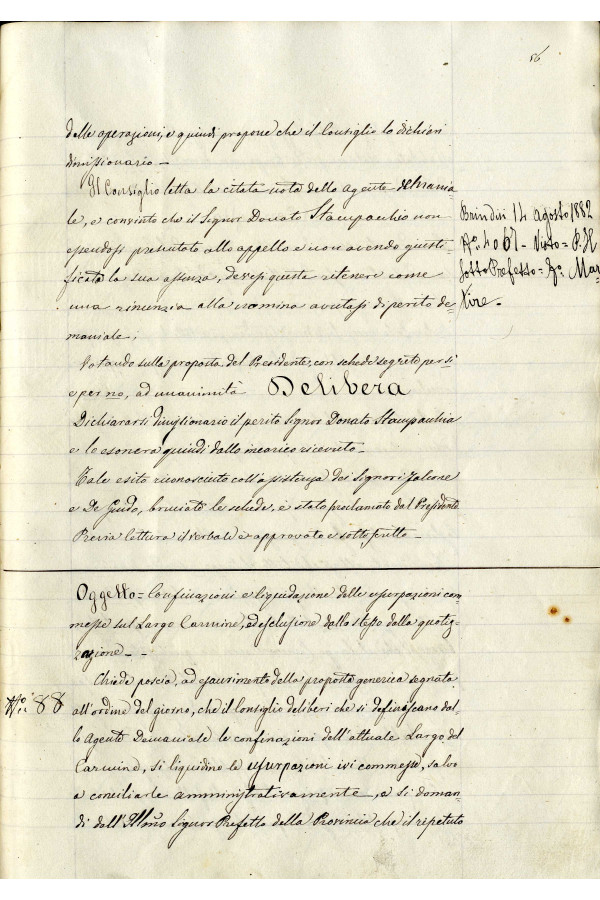 56
delle operazioni, e quindi propone che il Consiglio lo dichiari
dimissionario —
Il Consiglio letta la citata nota dello Agente demania-
le, e convinto che il Signor Donato Stampacchia non
essendosi presentato allo appello e non avendo giusti-
ficata la sua assenza, devesi queste ritenere come
una rinunzia alla nomina avutasi di perito de-
maniale;
Votando sulla proposta del Presidente, con schede segrete per si
e per no, ad unanimità Delibera
Dichiararsi dimissionario il perito Signor Donato Stampacchia
e lo esonera quindi dallo incarico ricevuto —
Tale esito riconosciuto coll'assistenza dei Signori Falcone
e De Guido, bruciate le schede, è stato proclamato dal Presidente
Previa lettura il verbale è approvato e sottoscritto —
Brindisi 14 Agosto 1882
N.o 4067 - Visto = P. Il
Sotto Prefetto = F.o Mar-
tire -
Oggetto = Confinazioni e liquidazione delle usurpazioni com-
messe sul Largo Carmine, ed esclusione dello stesso dalla quotiz-
zazione - -
N.o 88
Chiede poscia, ad esaurimento della proposta generica segnata
all'ordine del giorno, che il Consiglio deliberi che si definiscano dal-
lo Agente Demaniale le confinazioni dell'attuale Largo del
Carmine, si liquidino le usurpazioni ivi commesse, salvo
a conciliarle amministrativamente, e si doman-
di dall'Ill.mo Signor Prefetto della Provincia che il ripetuto